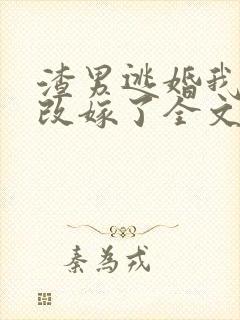 渣男逃婚我
改嫁了全文
秦为戎